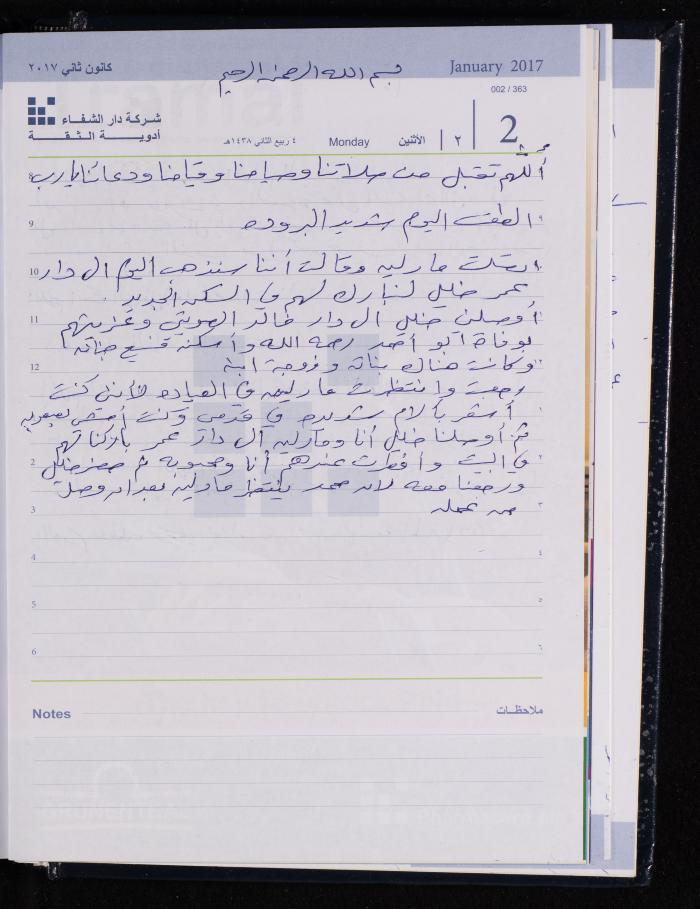 كانون ثاني ٢٠١٧
بسم الله الرحمن الرحيم
January 2017
002 / 363
شركة دار الشفاء
أدوية الثقة
٤ ربيع الثاني ١٤٣٨هـ
Monday
الأثنين
٢
2
أللهم تقبل من صلاتنا وصيامنا وقيامنا ودعائنا يارب
9 الطقس اليوم شديد البروده
10 اتصلت مارليه وقالت أننا سنذهب اليوم ال دار
عمر خليل لنبارك لهم في السكن الجديد
11 أوصلني خليل ال دار خالد وعزيتهم
بوفاة أبو أحمد رحمه الله وأسكنه فسيح جناته
12 وكانت هناك بناته وزوجة ابنه
رجعت وانتظرت مارليه في العياده لأنني كنت
أشعر بألام شديده في قدمي وكنت أمشي بصعوبه
ثم أوصلنا خليل أنا ومارليه ال دار عمر باركنا لهم
2 في البيت وأفطرت عندهم أنا ومحبوبه ثم حضر خليل
ورجعنا معه لانه محمد ينتظر مارليه بعد ان وصل
3 من عمله
4 ٤
5 ٥
6 ٦
Notes
ملاحظات